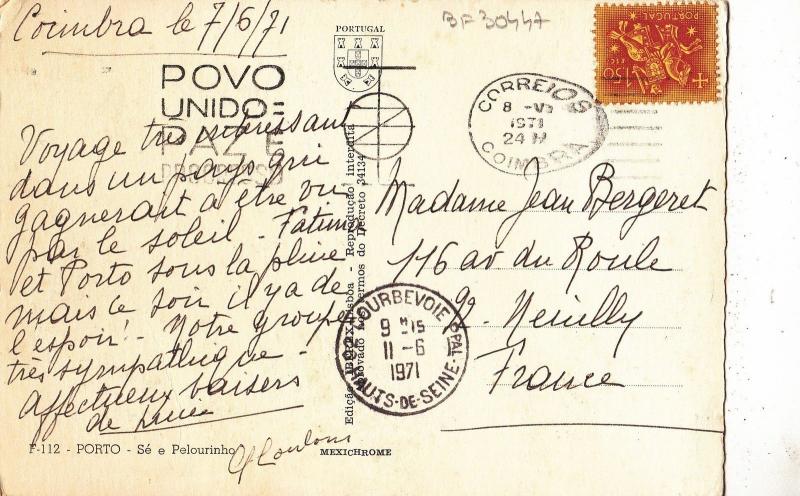 Coimbra le 7/6/71
BF 30447
PORTUGAL
PORTUGAL
POVO
UNIDO
PAZ E
PROGRESSO
CORREIOS
8 - VI
1971
24 H
COIMBRA
Voyage très intéressant
dans un pays qui
gagnerait à être vu
par le soleil - Fatima
et Porto sous la pluie
mais ce soir il y a de
l'espoir ! - Notre groupe
très sympathique -
affectueux baisers
de
Madame Jean Bergeret
116 av du Roule
92 - Neuilly
France
COURBEVOIE PPAL
9 H 15
11 - 6
1971
HAUTS-DE-SEINE
Lisboa - Reprodução interdita
termos do Decreto 34134
F-112 - PORTO - Sé e Pelourinho
MEXICHROME